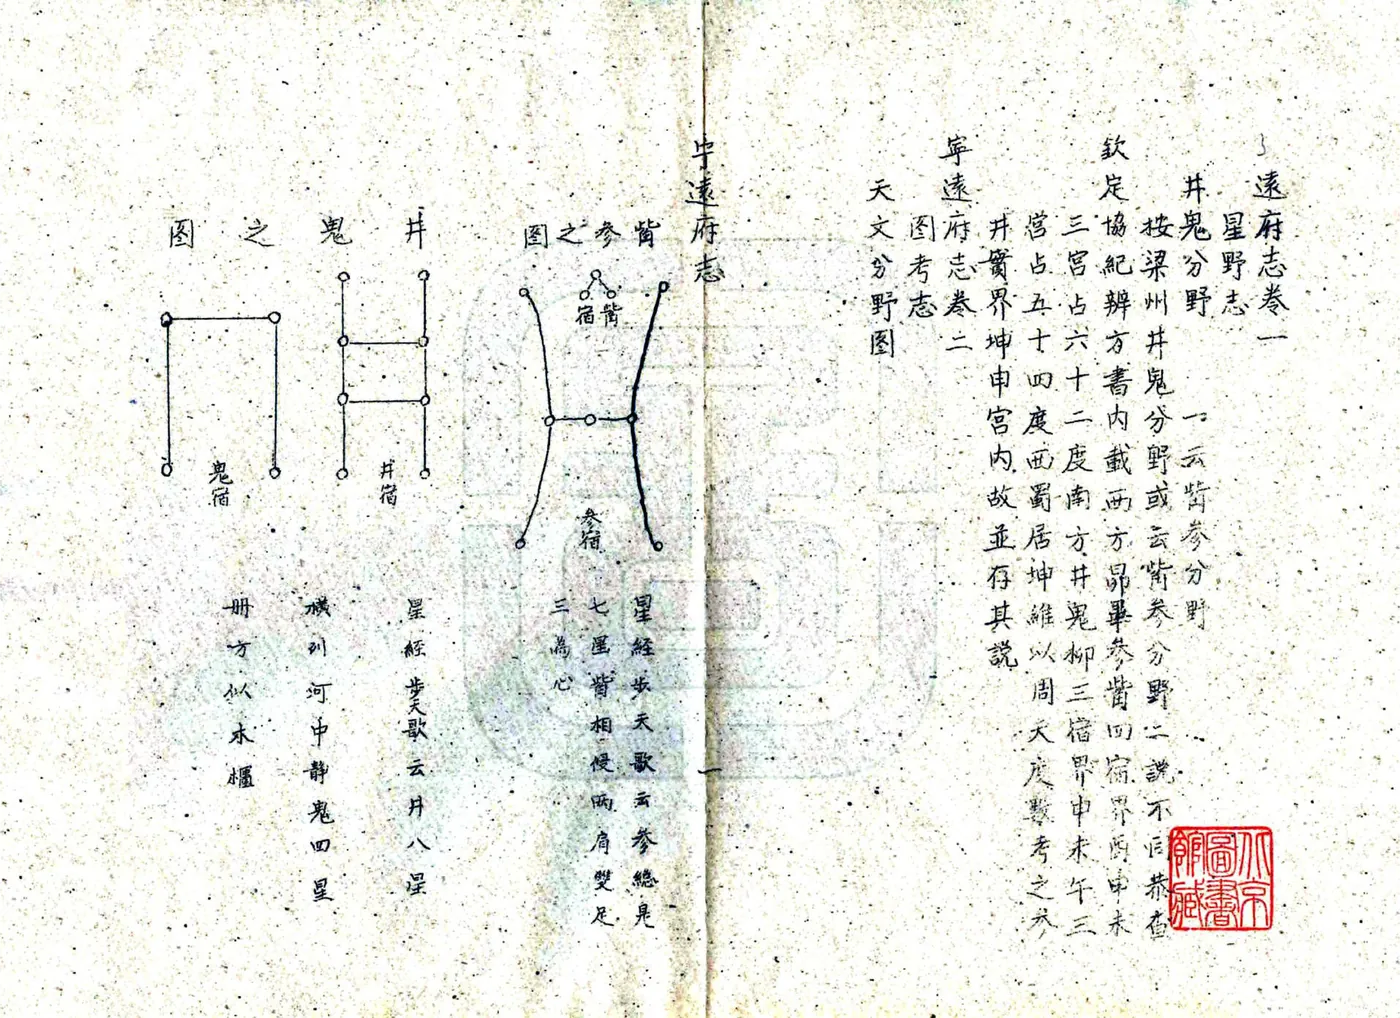 遠府志卷一
星野志
井鬼分野　一云觜参分野
按梁州井鬼分野或云觜参分野二説不同恭查
欽定協紀辨方書内載西方昴畢参觜四宿界酉申未
三宮占六十二度南方井鬼柳三宿界申未午三
宮占五十四度西蜀居坤維以周天度数考之参
井實界坤申宮内故並存其説
寧遠府志卷二
图考志
天文分野图
宁遠府志
一
觜参之图
觜宿
参宿
星经步天歌云参總是
七星觜相侵两肩雙足
三為心
井鬼之图
井宿
鬼宿
星經步天歌云井八星
横列河中静鬼四星
册方似木櫃
北京
圖書
館藏